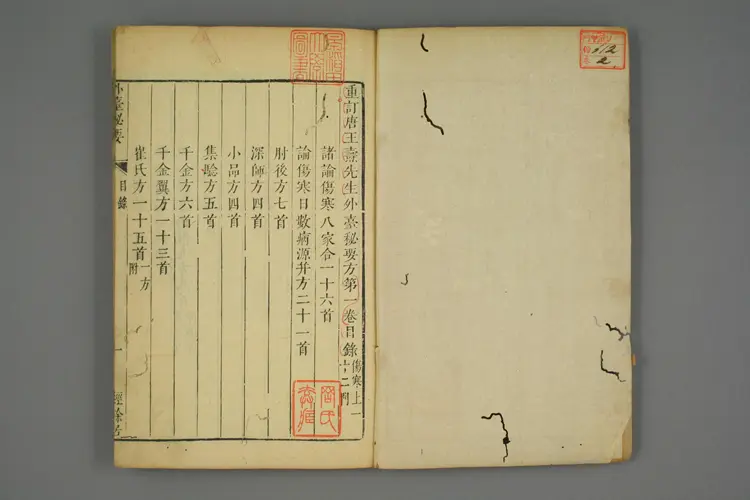 重訂唐王燾先生外臺秘要方第一卷目錄傷寒上一十二門
諸論傷寒八家合一十六首
論傷寒日數病源并方二十一首
肘後方七首
深師方四首
小品方四首
集驗方五首
千金方六首
千金翼方一十三首
崔氏方一十五首一方附
外臺秘要
目錄
一
經餘居